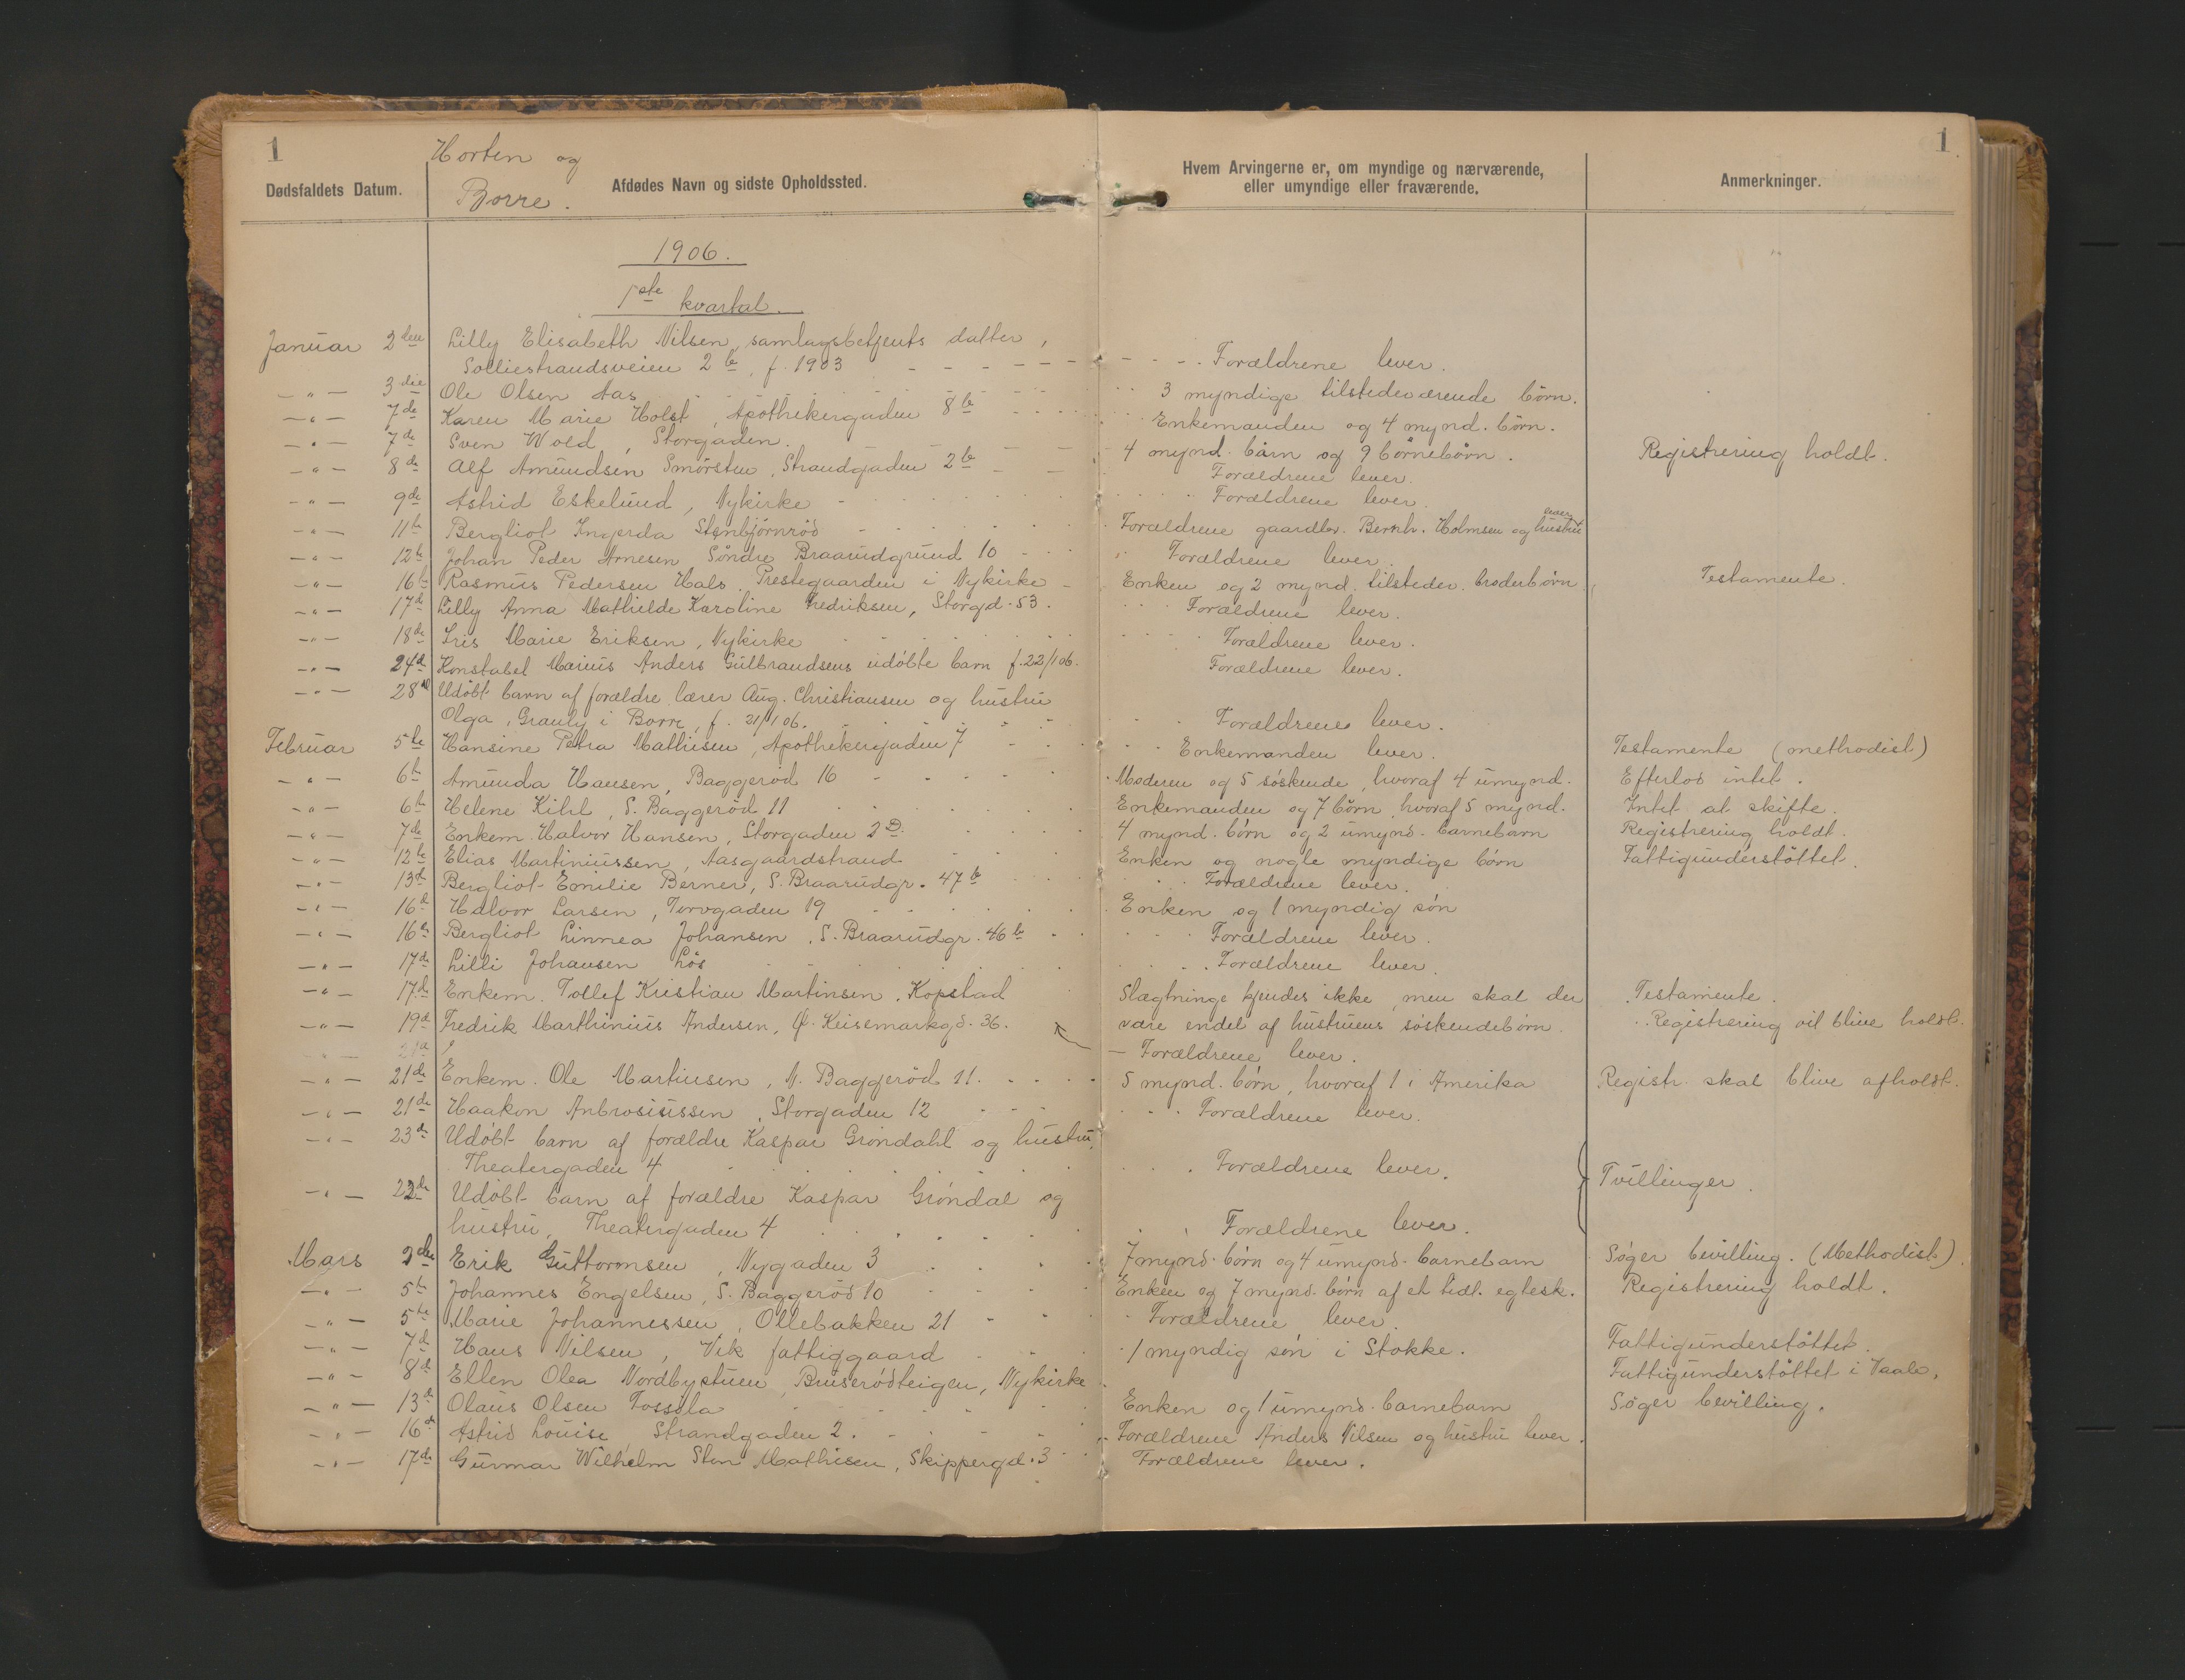 1
Horten og
Borre.
Dødsfaldets Datum.
Afdødes Navn og sidste Opholdssted.
Hvem Arvingerne er, om myndige og nærværende,
eller umyndige eller fraværende.
Anmerkninger.
1
1906.
1ste kvartal.
Januar 2den Lilly Elisabeth Nilsen, samlagsbetjents datter,
Solliestrandsveien 2 b, f. 1903 - - - - - Forældrene lever.
- " - 3die Ole Olsen Aas 3 myndige tilstedeværende børn.
- " - 7de Karen Marie Holst, Apothekergaden 8 b Enkemanden og 4 mynd. børn.
- " - 7de Sven Wold, Storgaden. 4 mynd. bårn og 9 børnebørn. Registrering holdt.
- " - 8de Alf Amundsen Smørsten, Strandgaden 2 b Forældrene lever.
- " - 9de Astrid Eskelund, Nykirke Forældrene lever.
- " - 11te Bergliot Ingerda Stenbjørnrød Forældrene gaardbr. Bernh. Holmsen og hustru lever
- " - 12te Johan Peder Arnesen Søndre Braarudgrund 10 Forældrene lever.
- " - 16de Rasmus Pedersen Hals, Prestegaarden i Nykirke Enken og 2 mynd. tilstedev. broderbørn Testamente.
- " - 17de Lilly Anna Mathilde Karoline Fredriksen, Storgd. 53. Forældrene lever.
- " - 18de Iris Marie Eriksen, Nykirke Forældrene lever.
- " - 24de Konstabel Marius Anders Gulbrandsens udøbte barn f. 22/1 06. Forældrene lever.
- " - 28de Udøbt barn af forældre lærer Aug. Christiansen og hustru
Olga, Grauly i Borre, f. 21/1 06. Forældrene lever.
Februar 5te Hansine Petra Mathisen, Apothekergaden 7 Enkemanden lever. Testamente (methodist)
- " - 6te Amunda Hansen, Baggerød 16 Moderen og 5 søskende, hvoraf 4 umynd. Efterlod intet.
- " - 6te Helene Kihl, S. Baggerød 11 Enkemanden og 7 børn, hvoraf 5 mynd. Intet at skifte.
- " - 7de Enkem. Halvor Hansen, Storgaden 2 D. 4 mynd. børn og 2 umynd. barnebarn Registrering holdt.
- " - 12te Elias Martiniussen, Aasgaardstrand Enken og nogle myndige børn Fattigunderstøttet.
- " - 13de Bergliot Emilie Berner, S. Braarudgr. 47 b Forældrene lever.
- " - 16de Halvor Larsen, Torvgaden 19 Enken og 1 myndig søn
- " - 16de Bergliot Linnea Johansen, S. Braarudgr. 46 b Forældrene lever.
- " - 17de Lilli Johansen Løs Forældrene lever.
- " - 17de Enkem. Tollef Kristian Martinsen, Kopstad Slægtninge kjendes ikke, men skal der Testamente.
- " - 19de Fredrik Marthinius Andersen, Ø. Keisemarkgd. 36. være endel af hustruens søskendebørn. Registrering vil blive holdt.
- Forældrene lever.
- " - 21de Enkem. Ole Martinsen, N. Baggerød 11. 5 mynd. børn, hvoraf 1 i Amerika Registr. skal blive afholdt.
- " - 21de Haakon Ambrosiussen, Storgaden 12 Forældrene lever.
- " - 23de Udøbt barn af forældre Kaspar Grøndahl og hustru,
Theatergaden 4 Forældrene lever.
Tvillinger.
- " - 22de Udøbt barn af forældre Kaspar Grøndal og
hustru, Theatergaden 4 Forældrene lever.
Mars 2den Erik Guttormsen, Nygaden 3 7 mynd. børn og 4 umynd. barnebarn Søger bevilling. (Methodist).
- " - 5te Johannes Engelsen, S. Baggerød 10 Enken og 7 mynd. børn af et tidl. egtesk. Registrering holdt.
- " - 5te Marie Johannessen, Ollebakken 21 Forældrene lever.
- " - 7de Hans Nilsen, Vik fattiggaard 1 myndig søn i Stokke. Fattigunderstøttet.
- " - 8de Ellen Olea Nordbystuen, Bruserødteigen, Nykirke Fattigunderstøttet i Vaale.
- " - 13de Olaus Olsen Fossola Enken og 1 umynd. barnebarn Søger bevilling.
- " - 16de Astrid Louise Strandgaden 2. Forældrene Anders Nilsen og hustru lever.
- " - 17de Gunnar Wilhelm Sten Mathisen, Skippergd. 3 Forældrene lever.